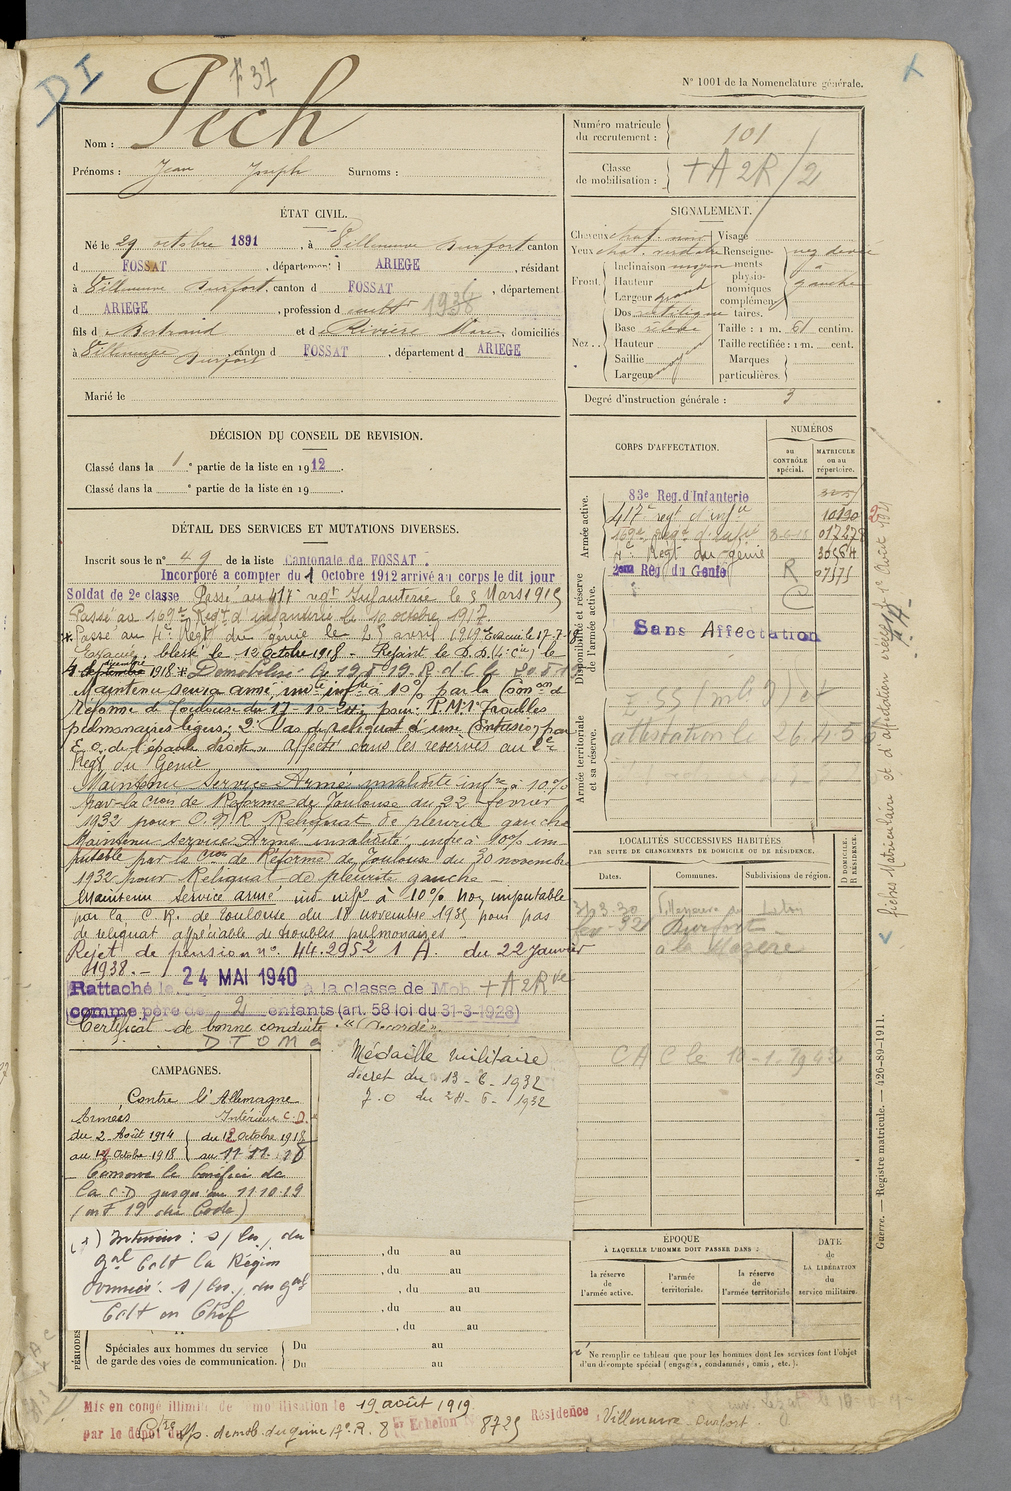 DI
F 37
N° 1001 de la Nomenclature générale.
Nom : Pech
Prénoms : Jean Joseph Surnoms :
ÉTAT CIVIL.
Né le 29 octobre 1891, à Villeneuve Durfort canton
d FOSSAT, département d ARIEGE, résidant
à Villeneuve Durfort, canton d FOSSAT, département
d ARIEGE, profession d cultr 1936
fils d Bertrand et d Rivière Marie domiciliés
à Villeneuve Durfort canton d FOSSAT, département d ARIEGE
Marié le
DÉCISION DU CONSEIL DE REVISION.
Classé dans la 1e partie de la liste en 1912.
Classé dans la e partie de la liste en 19 .
DÉTAIL DES SERVICES ET MUTATIONS DIVERSES.
Inscrit sous le n° 49 de la liste Cantonale de FOSSAT.
Incorporé a compter du 1 Octobre 1912 arrivé au corps le dit jour
Soldat de 2e classe Passé au 417e regt Infanterie le 3 Mars 1915
Passé au 169e Regt d'infanterie le 10 octobre 1917
* Passé au 4e Regt du génie le 25 avril 1919 Evacué le 17-7-18
Evacué, blessé le 12 Octobre 1918. Rejoint le D.D. (4e Cie) le
4 septembre décembre 1918 * Démobilisé le 19 8 19. R. d C le 20 8 19
Maintenu service armé, invté infre à 10% par la Comon d
Réforme de Toulouse du 17-10 pour: P.M. 1° Troubles
pulmonaires légers; 2° Pas de reliquat d'une Contusion par
E.O. de l'épaule droite. affecté dans les réserves au 2e
Regt du Génie
Maintenu Service Armé invalidité infre à 10%
par la Cion de Réforme de Toulouse du 22 février
1932 pour Reliquat de pleurite gauche
Maintenu service Armé invalidité, infre à 10% im-
putable par la Cion de Réforme de Toulouse du 30 novembre
1932 pour Reliquat de pleurite gauche -
Maintenu service armé, inv infre à 10% non imputable
par la C.R. de Toulouse du 18 novembre 1935 pour pas
de reliquat appréciable de troubles pulmonaires -
Rejet de pension n° 44.2952 1 A. du 22 Janvier
1938. -
24 MAI 1940
Rattaché le à la classe de Mob. + A2Rve
comme père de 2 enfants (art. 58 loi du 31-3-1928)
Certificat de bonne conduite : "Accordé".
Médaille militaire
décret du 13-6-1932
J.O du 24-6-1932
CAMPAGNES.
Contre l'Allemagne
Armées Intérieur C.D.
du 2 Août 1914 du 12 Octobre 1918
au 12 Octobre 1918 au 11-11-18
Conserve le bénéfice de
la C.D jusqu'au 11 10 19
(art 19 du Code)
Intérieur : s/ les, du
gal Cdt la Région
Armées : s/ les, du gal
Cdt en Chef
, du au
, du au
, du au
, du au
, du au
PÉRIODES
Spéciales aux hommes du service
de garde des voies de communication.
Du au
Du au
Numéro matricule
du recrutement : 101
Classe
de mobilisation : + A 2R / 2
SIGNALEMENT.
Cheveux chat. noir
Yeux chat. verdatre
Front. Inclinaison moyen
Hauteur
Largeur grand
Nez.. Dos rectiligne
Base relevée
Hauteur
Saillie
Largeur moyen
Visage
Renseignements physionomiques complémentaires. nez dévié à gauche
Taille : 1 m. 61 centim.
Taille rectifiée : 1 m. cent.
Marques
particulières.
Degré d'instruction générale : 3
CORPS D'AFFECTATION.
NUMÉROS
au CONTRÔLE spécial.
MATRICULE ou au répertoire.
Armée active.
83e Reg. d'Infanterie
417e regt d'infie 10190
169e Regt d'infie 8-6-18 017278
4e Regt du génie
2eme Reg du Genie R 07575
C
Disponibilité et réserve de l'armée active.
Sans Affectation
attestation le 26.4.56
Armée territoriale et sa réserve.
LOCALITÉS SUCCESSIVES HABITÉES
PAR SUITE DE CHANGEMENTS DE DOMICILE OU DE RÉSIDENCE.
Dates.
Communes.
Subdivisions de région.
D DOMICILE.
R RÉSIDENCE.
31.8.30 Villeneuve du Latou
Durfort
à la Mazere
C A C le 10-1-1942
ÉPOQUE
À LAQUELLE L'HOMME DOIT PASSER DANS :
la réserve de l'armée active.
l'armée territoriale.
la réserve de l'armée territoriale
DATE de LA LIBÉRATION du service militaire.
Ne remplir ce tableau que pour les hommes dont les services font l'objet
d'un décompte spécial (engagés, condamnés, omis, etc.).
fiches Matriculaire et d'affectation créées le 1er Août 1921
Guerre. — Registre matricule. — 426-89-1911.
Mis en congé illimité de démobilisation le 19 août 1919
par le dépôt du démob. du génie 8e Echelon N° 8725 Résidence : Villeneuve Durfort.